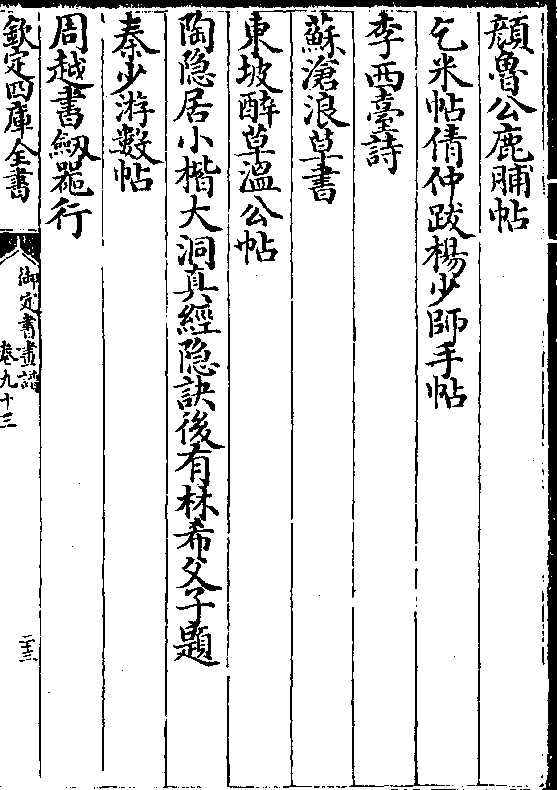 顔魯公鹿脯帖
乞米帖倩仲跋楊少師手帖
李西臺詩
蘇滄浪草書
東坡醉草溫公帖
陶隐居小楷大洞真經隐訣後有林希父子題
秦少游數帖
周越書劔器行
欽定四庫全書
御定書畫譜
卷九十三
二十三